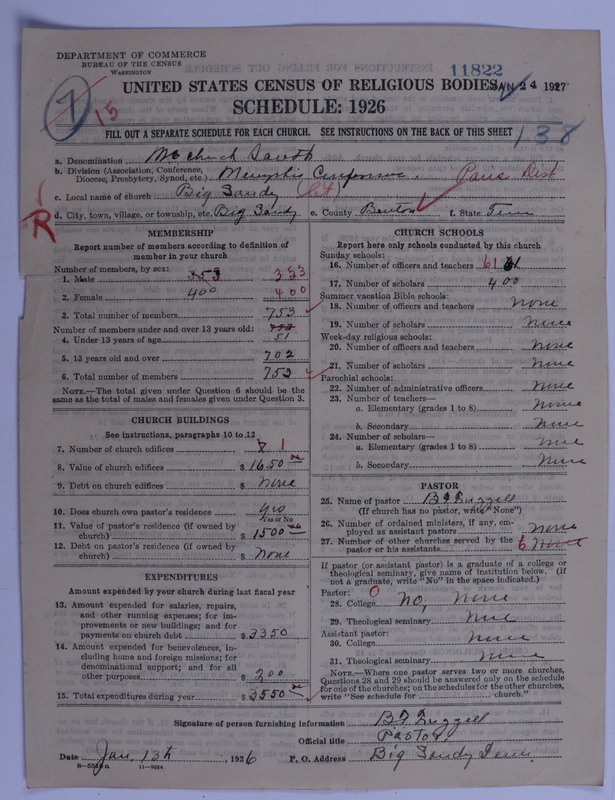 DEPARTMENT OF COMMERCE
BUREAU OF THE CENSUS
WASHINGTON
11822
UNITED STATES CENSUS OF RELIGIOUS BODIES
JAN 24 1927
SCHEDULE: 1926
7
15
138
FILL OUT A SEPARATE SCHEDULE FOR EACH CHURCH. SEE INSTRUCTIONS ON THE BACK OF THIS SHEET
a. Denomination M E church South
b. Division (Association, Conference, Diocese, Presbytery, Synod, etc.) Memphis Conference. Paris Dist
c. Local name of church Big Sandy (Ct)
R
d. City, town, village, or township, etc. Big Sandy e. County Benton f. State Tenn
MEMBERSHIP
Report number of members according to definition of
member in your church
Number of members, by sex:
1. Male 353 353
2. Female 400 400
3. Total number of members 753
Number of members under and over 13 years old: 753
4. Under 13 years of age 51
5. 13 years old and over 702
6. Total number of members 753
NOTE.—The total given under Question 6 should be the
same as the total of males and females given under Question 3.
CHURCH BUILDINGS
See instructions, paragraphs 10 to 12
7. Number of church edifices 1
8. Value of church edifices $ 1650 00
9. Debt on church edifices $ None
10. Does church own pastor's residence? Yes
Yes or No
11. Value of pastor's residence (if owned by
church) $ 1500 00
12. Debt on pastor's residence (if owned by
church) $ None
EXPENDITURES
Amount expended by your church during last fiscal year
13. Amount expended for salaries, repairs,
and other running expenses; for im-
provements or new buildings; and for
payments on church debt $ 3350
14. Amount expended for benevolences, in-
cluding home and foreign missions; for
denominational support; and for all
other purposes $ 200
15. Total expenditures during year $ 3550
CHURCH SCHOOLS
Report here only schools conducted by this church
Sunday schools:
16. Number of officers and teachers 61
17. Number of scholars 400
Summer vacation Bible schools:
18. Number of officers and teachers None
19. Number of scholars None
Week-day religious schools:
20. Number of officers and teachers None
21. Number of scholars None
Parochial schools:
22. Number of administrative officers None
23. Number of teachers—
a. Elementary (grades 1 to 8) None
b. Secondary None
24. Number of scholars—
a. Elementary (grades 1 to 8) None
b. Secondary None
PASTOR
25. Name of pastor
(If church has no pastor, write "None")
26. Number of ordained ministers, if any, em-
ployed as assistant pastors None
27. Number of other churches served by the
pastor or his assistants 6 None
If pastor (or assistant pastor) is a graduate of a college or
theological seminary, give name of institution below. (If
not a graduate, write "No" in the space indicated.)
Pastor: O
28. College No, None
29. Theological seminary None
Assistant pastor:
30. College None
31. Theological seminary None
NOTE.—Where one pastor serves two or more churches,
Questions 28 and 29 should be answered only on the schedule
for one of the churches; on the schedules for the other churches,
write "See schedule for church."
Signature of person furnishing information
Official title Pastor,
Date Jan. 13th, 1926 P. O. Address Big Sandy Tenn.
11—9084